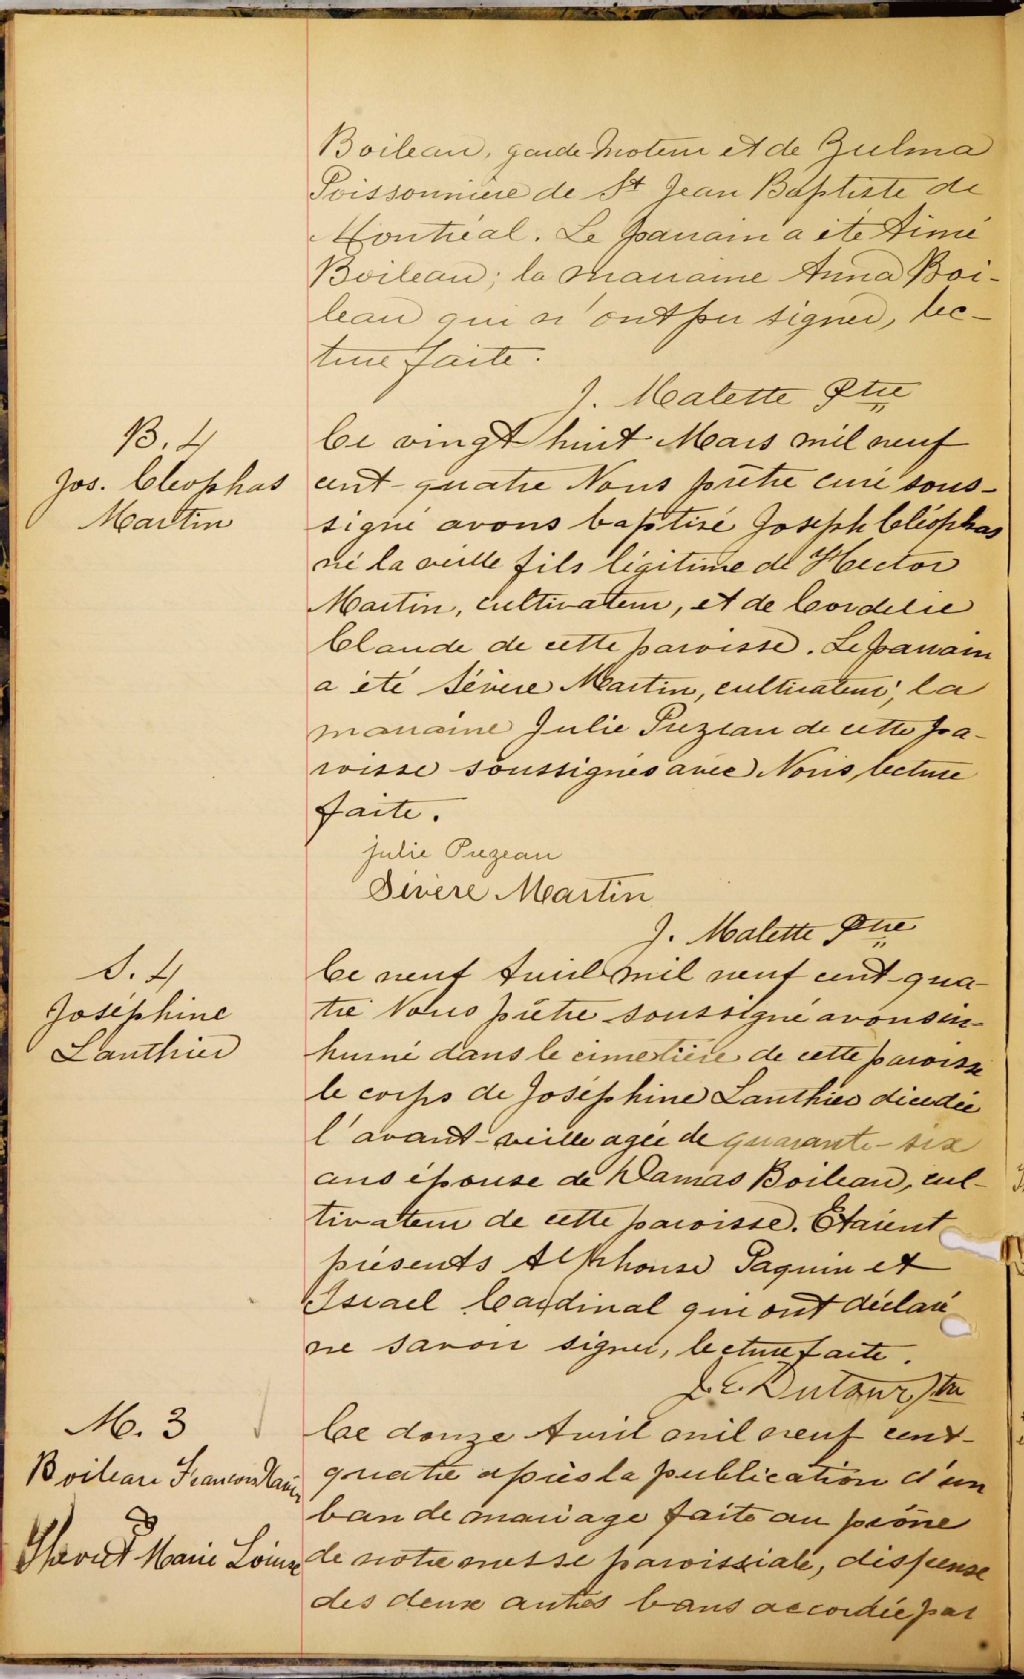 Boileau, garde-moteur et de Zulma
Poissonnière de St Jean Baptiste de
Montréal. Le parrain a été Aimé
Boileau; la marraine Anna Boi-
leau qui n'ont pu signer, lec-
ture faite.
J. Malette Ptre
B. 4
Jos. Cléophas
Martin
Ce vingt huit Mars mil neuf
cent-quatre Nous prêtre curé sous-
signé avons baptisé Joseph Cléophas
né la veille fils légitime de Hector
Martin, cultivateur, et de Cordelie
Claude de cette paroisse. Le parrain
a été Sévère Martin, cultivateur; la
marraine Julie Prezeau de cette pa-
roisse soussignés avec Nous, lecture
faite.
Julie Prezeau
Sévère Martin
J. Malette Ptre
S. 4
Joséphine
Lanthier
Ce neuf Avril mil neuf cent-qua-
tre Nous prêtre soussigné avons in-
humé dans le cimetière de cette paroisse
le corps de Joséphine Lanthier décédée
l'avant-veille agée de quarante-six
ans épouse de Damas Boileau, cul-
tivateur de cette paroisse. Etaient
présents Alphonse Paquin et
Israel Cardinal qui ont déclaré
ne savoir signer, lecture faite.
J. E. Dutour Ptre
M. 3
Boileau Francois Xavier
&
Marie Louise
Ce douze Avril mil neuf cent-
quatre après la publication d'un
ban de mariage faite au prône
de notre messe paroissiale, dispense
des deux autres bans accordée par